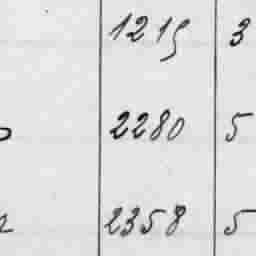 1215 3
2280 5
2358 5